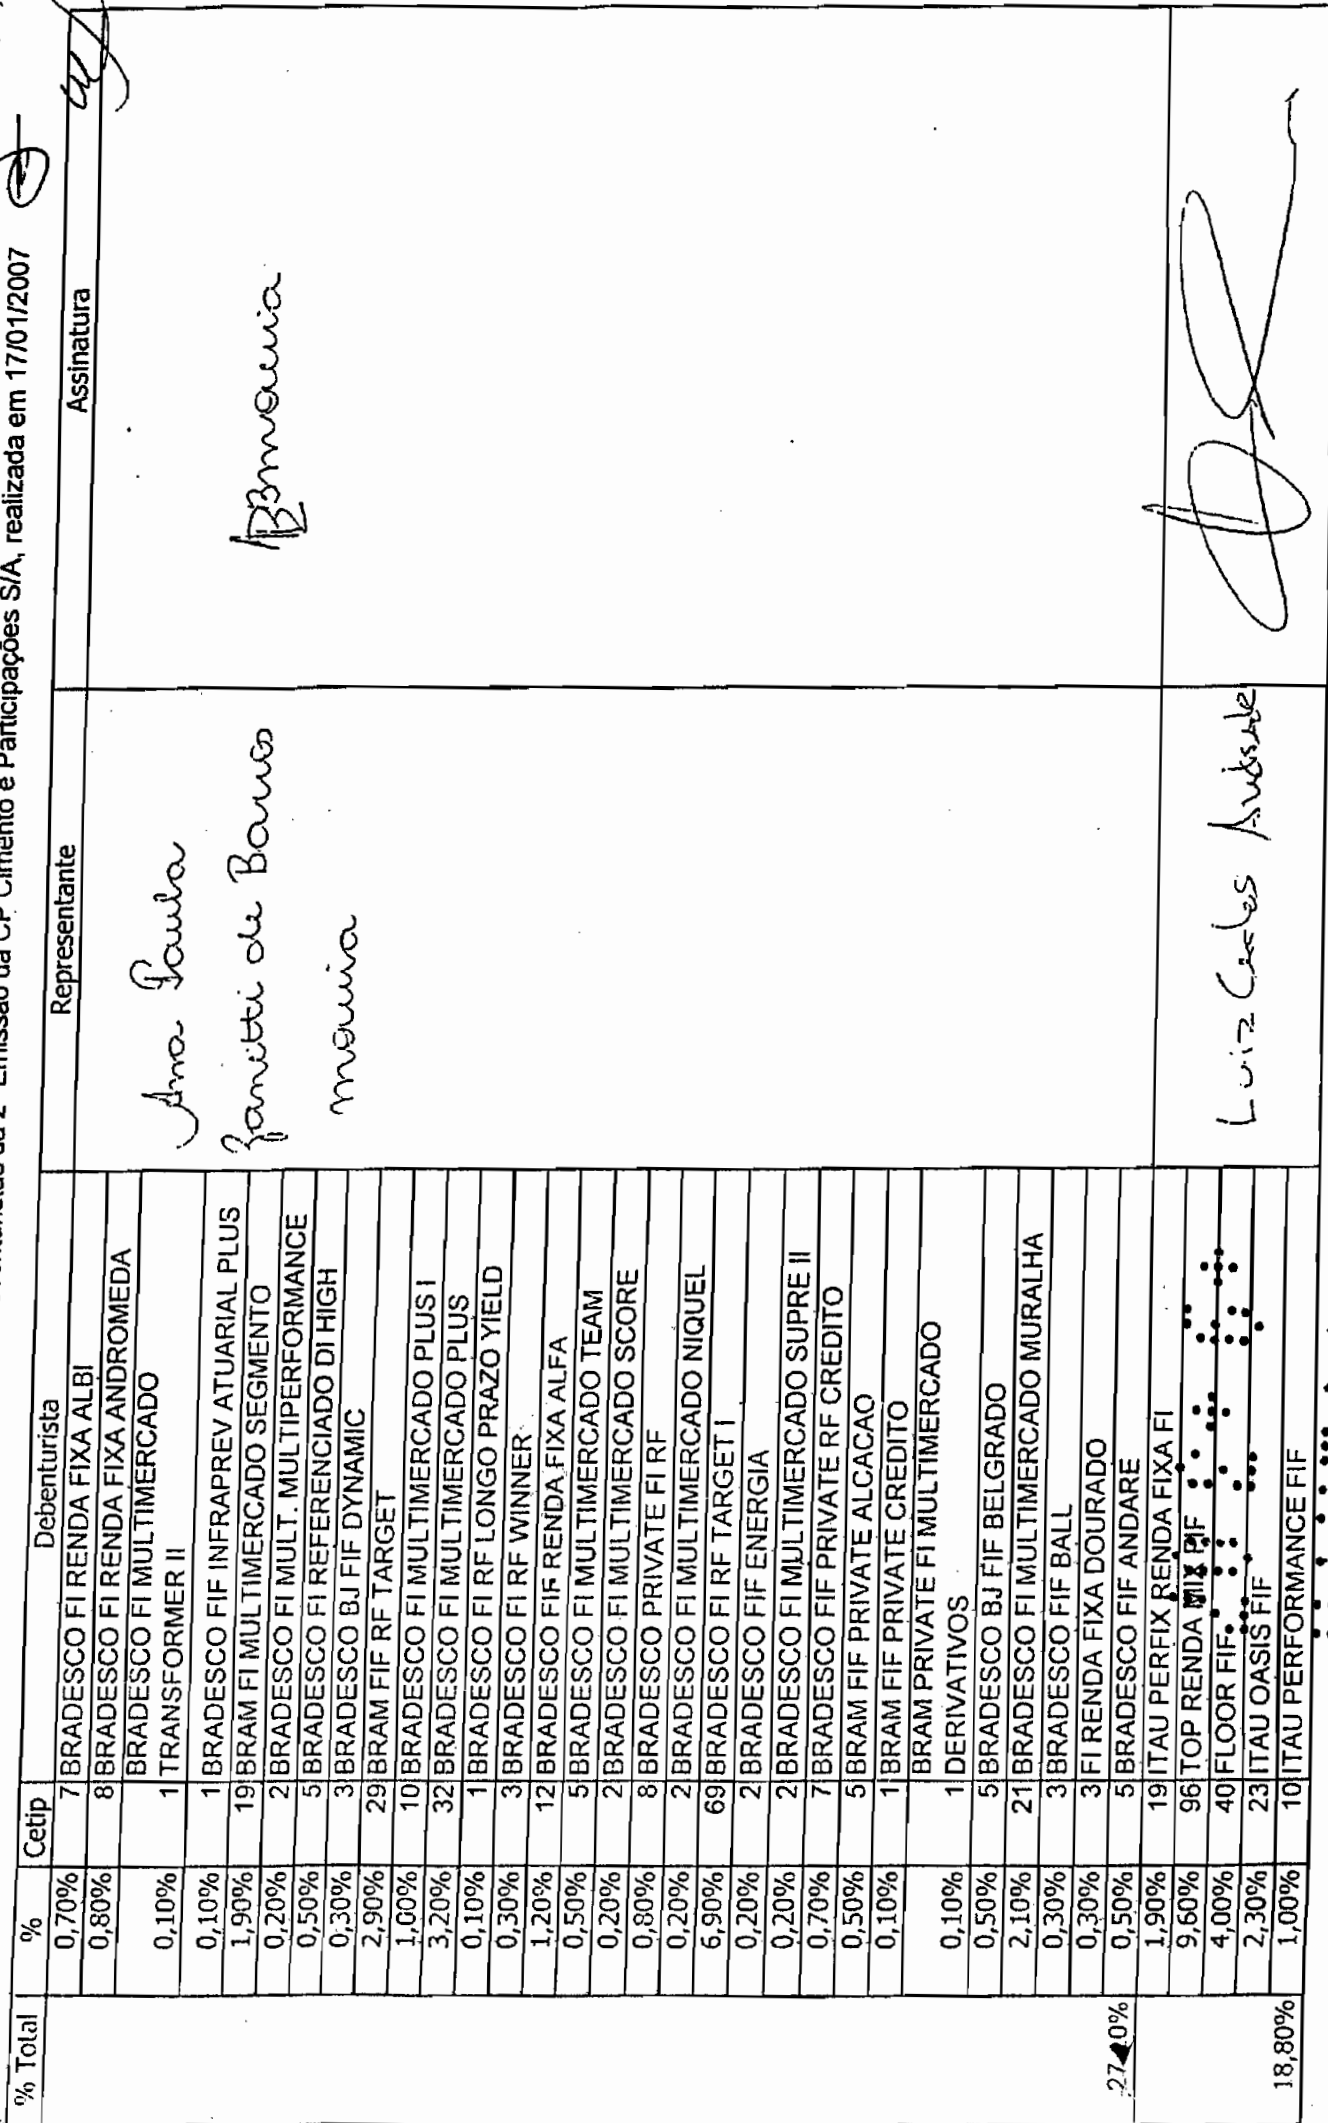 da CP Cimento e Participações S/A, realizada em 17/01/2007
% Total % Cetip Debenturista Representante Assinatura
0,70% 7 BRADESCO FI RENDA FIXA ALBI
0,80% 8 BRADESCO FI RENDA FIXA ANDROMEDA
BRADESCO FI MULTIMERCADO
0,10% 1 TRANSFORMER II
0,10% 1 BRADESCO FIF INFRAPREV ATUARIAL PLUS
1,90% 19 BRAM FI MULTIMERCADO SEGMENTO
0,20% 2 BRADESCO FI MULT. MULTIPERFORMANCE
0,50% 5 BRADESCO FI REFERENCIADO DI HIGH
0,30% 3 BRADESCO BJ FIF DYNAMIC
2,90% 29 BRAM FIF RF TARGET
1,00% 10 BRADESCO FI MULTIMERCADO PLUS I
3,20% 32 BRADESCO FI MULTIMERCADO PLUS
0,10% 1 BRADESCO FI RF LONGO PRAZO YIELD
0,30% 3 BRADESCO FI RF WINNER
1,20% 12 BRADESCO FIF RENDA FIXA ALFA
0,50% 5 BRADESCO FI MULTIMERCADO TEAM
0,20% 2 BRADESCO FI MULTIMERCADO SCORE
0,80% 8 BRADESCO PRIVATE FI RF
0,20% 2 BRADESCO FI MULTIMERCADO NIQUEL
6,90% 69 BRADESCO FI RF TARGET I
0,20% 2 BRADESCO FIF ENERGIA
0,20% 2 BRADESCO FI MULTIMERCADO SUPRE II
0,70% 7 BRADESCO FIF PRIVATE RF CREDITO
0,50% 5 BRAM FIF PRIVATE ALCACAO
0,10% 1 BRAM FIF PRIVATE CREDITO
BRAM PRIVATE FI MULTIMERCADO
0,10% 1 DERIVATIVOS
0,50% 5 BRADESCO BJ FIF BELGRADO
2,10% 21 BRADESCO FI MULTIMERCADO MURALHA
0,30% 3 BRADESCO FIF BALL
0,30% 3 FI RENDA FIXA DOURADO
0,50% 5 BRADESCO FIF ANDARE
Ana Paula
Zanitti de Barros
1,90% 19 ITAU PERFIX RENDA FIXA FI
9,60% 96 TOP RENDA MIX FIF
4,00% 40 FLOOR FIF
2,30% 23 ITAU OASIS FIF
18,80% 1,00% 10 ITAU PERFORMANCE FIF
Luiz Carlos Andrade